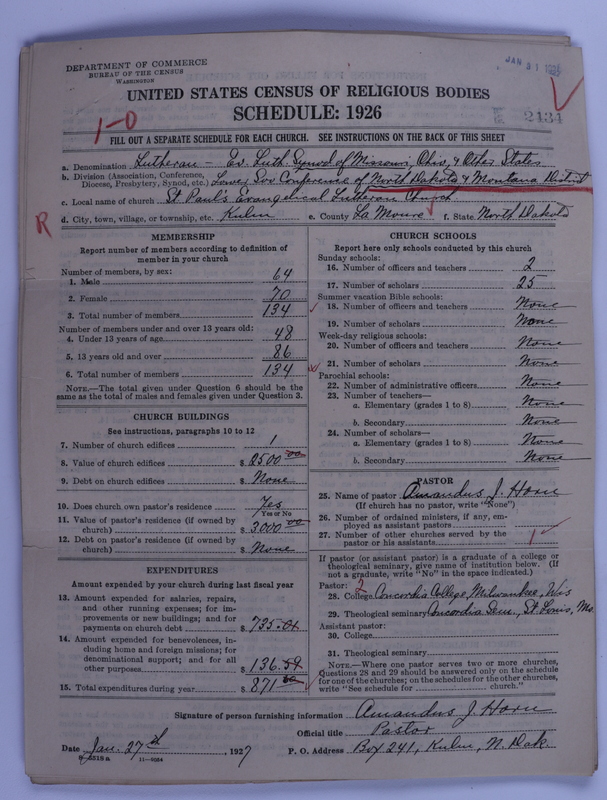 DEPARTMENT OF COMMERCE
BUREAU OF THE CENSUS
WASHINGTON
JAN 31
UNITED STATES CENSUS OF RELIGIOUS BODIES
SCHEDULE: 1926
2434
1-0
FILL OUT A SEPARATE SCHEDULE FOR EACH CHURCH. SEE INSTRUCTIONS ON THE BACK OF THIS SHEET
a. Denomination Lutheran - Ev. Luth. Synod of Missouri, Ohio, & Other States
b. Division (Association, Conference, Diocese, Presbytery, Synod, etc.) Lower Soo Conference of North Dakota & Montana District
c. Local name of church St. Paul's Evangelical Lutheran Church
R
d. City, town, village, or township, etc. Kulm e. County La Moure f. State North Dakota
MEMBERSHIP
Report number of members according to definition of
member in your church
Number of members, by sex:
1. Male 64
2. Female 70
3. Total number of members 134
Number of members under and over 13 years old:
4. Under 13 years of age 48
5. 13 years old and over 86
6. Total number of members 134
NOTE.—The total given under Question 6 should be
same as the total of males and females given under Question 3.
CHURCH BUILDINGS
See instructions, paragraphs 10 to 12
7. Number of church edifices 1
8. Value of church edifices $ 2500 00
9. Debt on church edifices $ None
10. Does church own pastor's residence Yes
Yes or No
11. Value of pastor's residence (if owned by
church) $ 3000 00
12. Debt on pastor's residence (if owned by
church) $ None
EXPENDITURES
Amount expended by your church during last fiscal year
13. Amount expended for salaries, repairs,
and other running expenses; for im-
provements or new buildings; and for
payments on church debt $ 735.01
14. Amount expended for benevolences, in-
cluding home and foreign missions; for
denominational support; and for all
other purposes $ 136.59
15. Total expenditures during year $ 871 60
CHURCH SCHOOLS
Report here only schools conducted by this church
Sunday schools:
16. Number of officers and teachers 2
17. Number of scholars 25
Summer vacation Bible schools:
18. Number of officers and teachers None
19. Number of scholars None
Week-day religious schools:
20. Number of officers and teachers None
21. Number of scholars None
Parochial schools:
22. Number of administrative officers None
23. Number of teachers—
a. Elementary (grades 1 to 8) None
b. Secondary None
24. Number of scholars—
a. Elementary (grades 1 to 8) None
b. Secondary None
PASTOR
25. Name of pastor Amandus J. Horn
(If church has no pastor, write "None")
26. Number of ordained ministers, if any, em-
ployed as assistant pastors
27. Number of other churches served by the
pastor or his assistants 1
If pastor (or assistant pastor) is a graduate of a college or
theological seminary, give name of institution below. (If
not a graduate, write "No" in the space indicated.)
Pastor: 2
28. College Concordia College, Milwaukee, Wis
29. Theological seminary Concordia Sem., St. Louis, Mo.
Assistant pastor:
30. College
31. Theological seminary
NOTE.—Where one pastor serves two or more churches,
Questions 28 and 29 should be answered only on the schedule
for one of the churches; on the schedules for the other churches,
write "See schedule for church."
Signature of person furnishing information Amandus J. Horn
Official title Pastor
Date Jan. 27th, 1927 P. O. Address Box 241, Kulm, N. Dak.